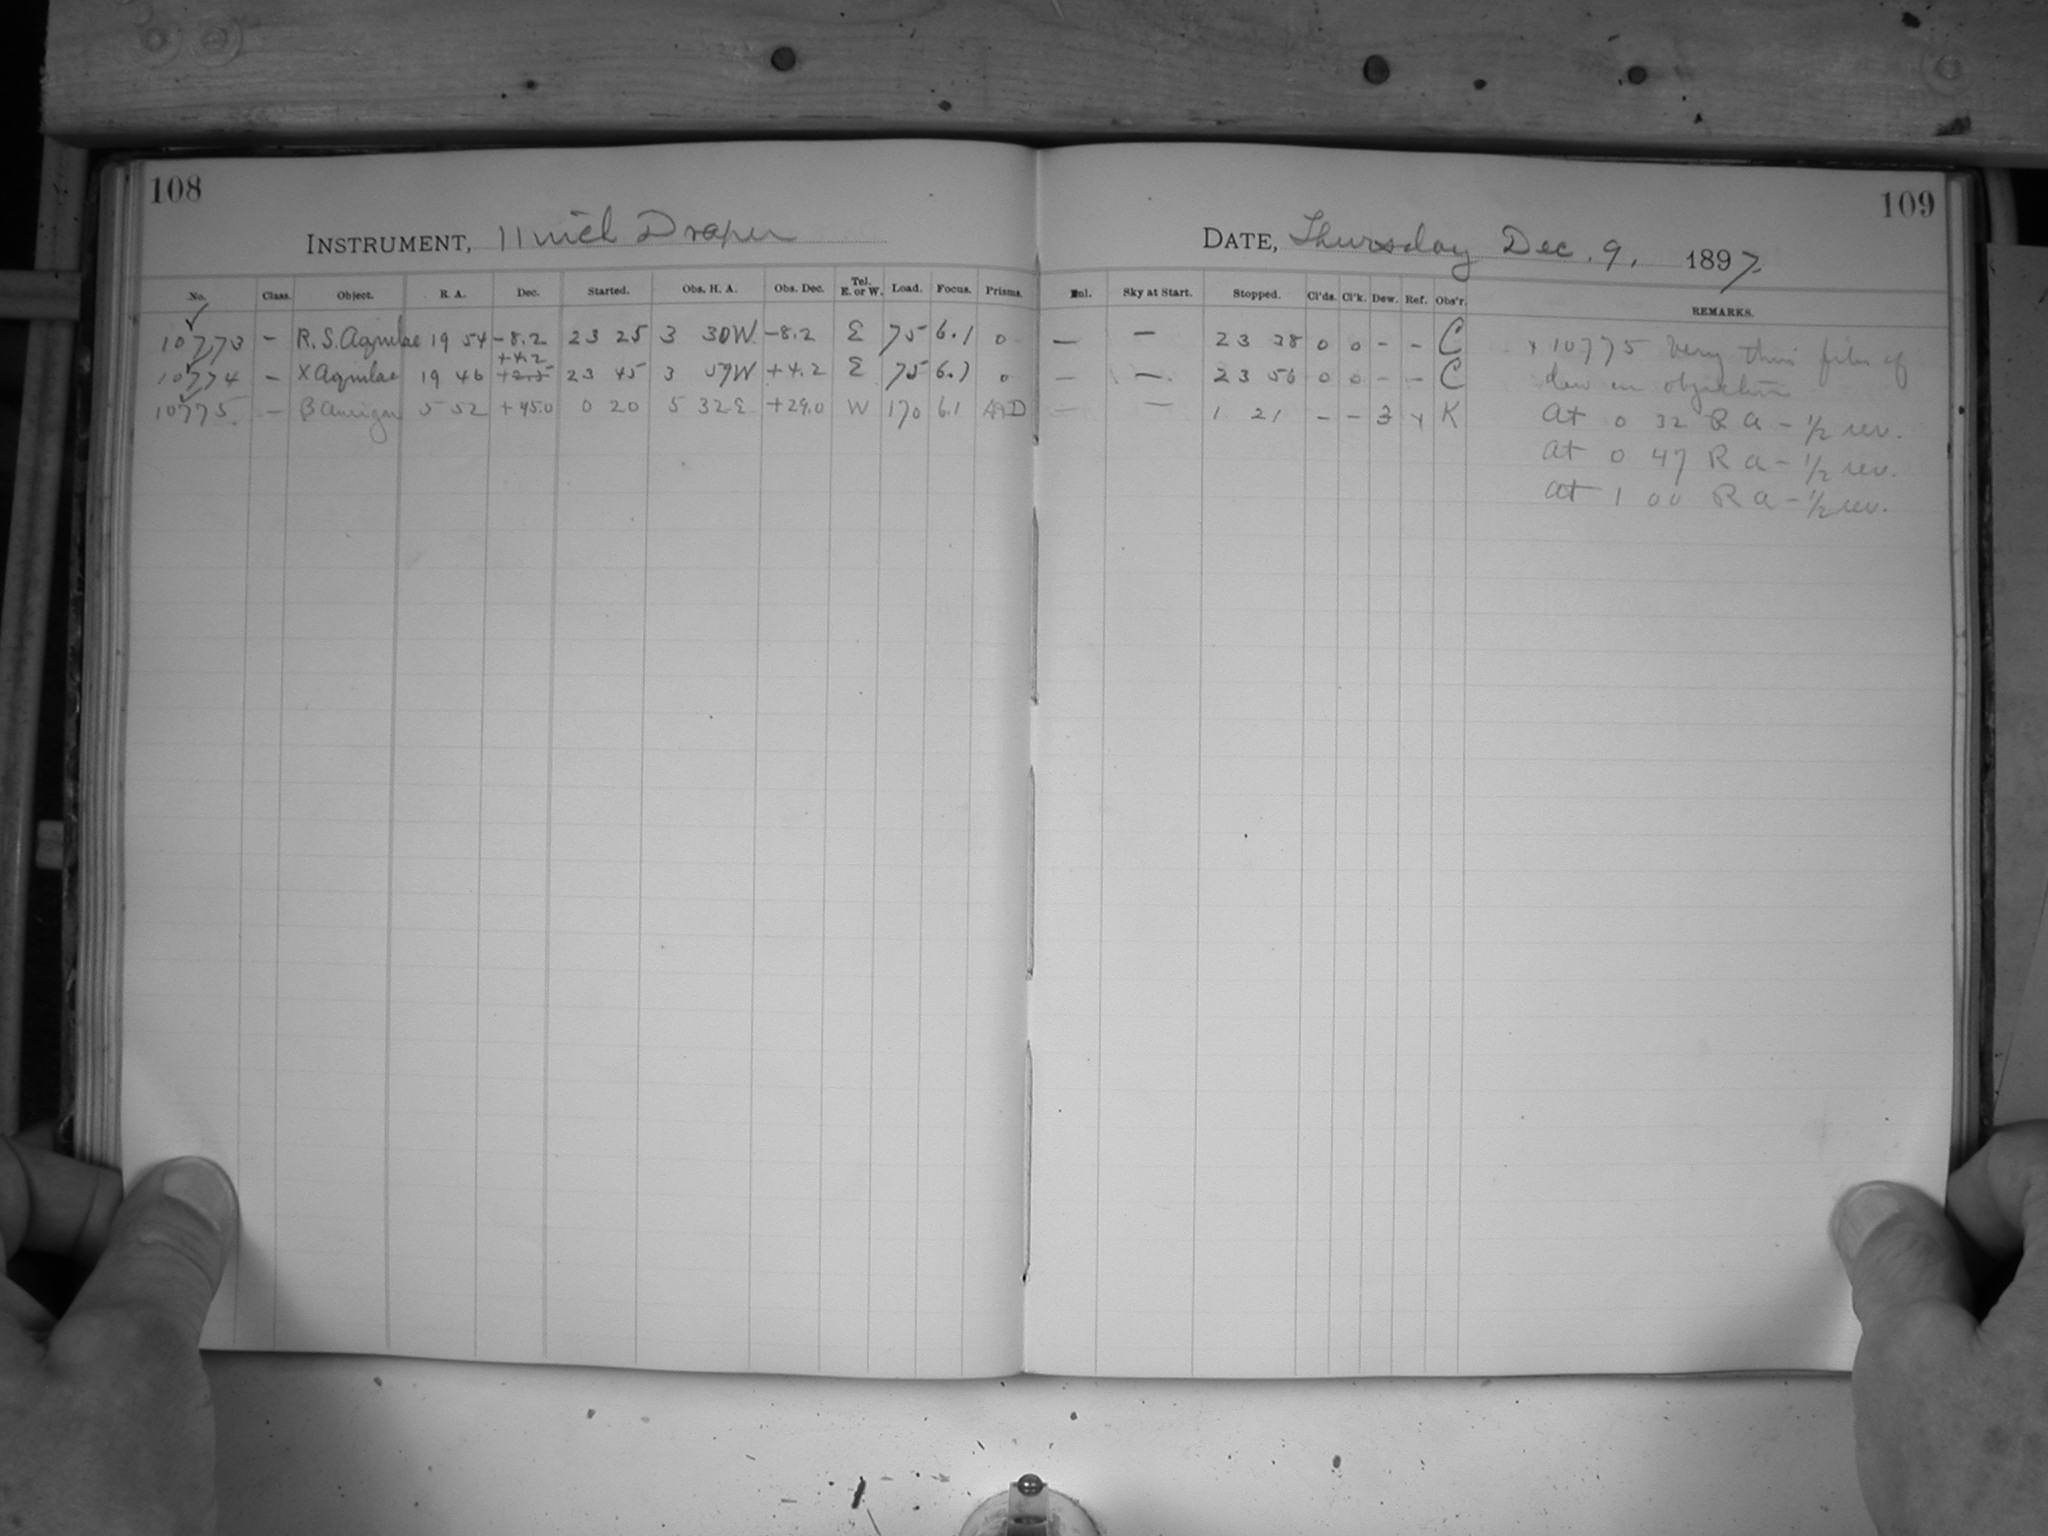 108
INSTRUMENT, 11 inch Draper
No. Class. Object. R. A. Dec. Started. Obs. H. A. Obs. Dec. Tel. E. or W. Load. Focus. Prisms.
10773 – R.S. Aquilae 19 54 -8.2 23 25 3 30W -8.2 E 75 6.1 0
+4.2
10774 – X Aquilae 19 46 +2.5 23 45 3 59W +4.2 E 75 6.1 0
10775 – B Aurigae 5 52 +45.0 0 20 5 32E +29.0 W 170 6.1
109
DATE, Thursday Dec. 9, 1897.
Sky at Start. Stopped. Cl'ds. Cl'k. Dew. Ref. Obs'r. REMARKS.
— — 23 38 0 0 – – C x 10775 Very thin film of
— — 23 56 0 0 – – C dew on objective
— — 1 21 – – 3 x K At 0 32 R a – 1/2 rev.
At 0 47 R a – 1/2 rev.
At 1 00 R a – 1/2 rev.